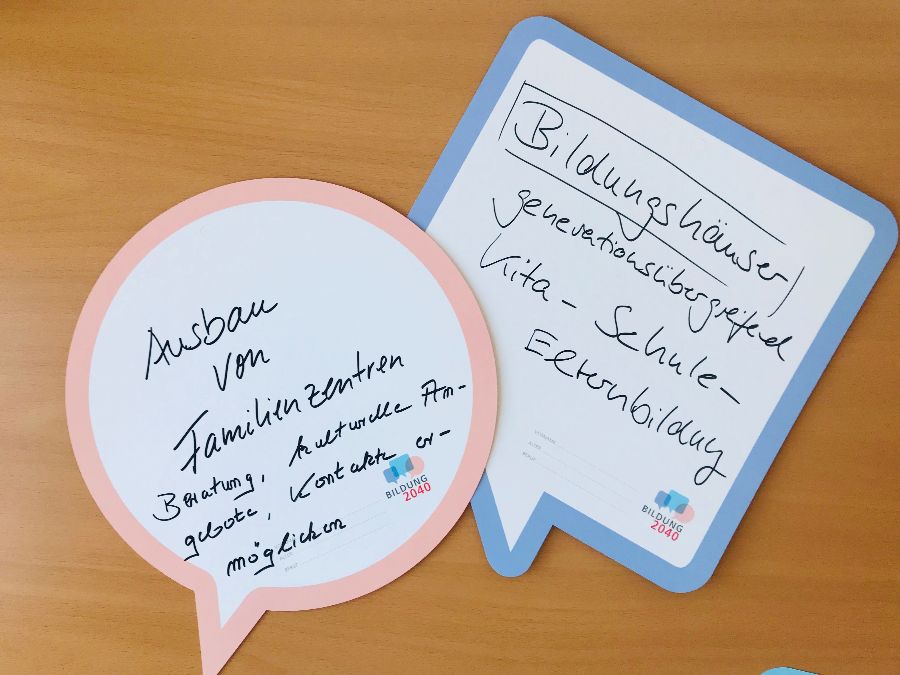 Ausbau
von
Familienzentren
Beratung, kulturelle An-
gebote, Kontakte er-
möglichen
BILDUNG
2040
Bildungshäuser
generationsübergreifend
Kita - Schule -
Elternbildung
BILDUNG
2040